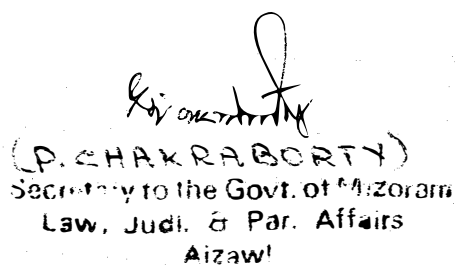 (P. CHAKRABORTY)
Secretary to the Govt. of Mizoram
Law, Judl. & Par. Affairs
Aizawl